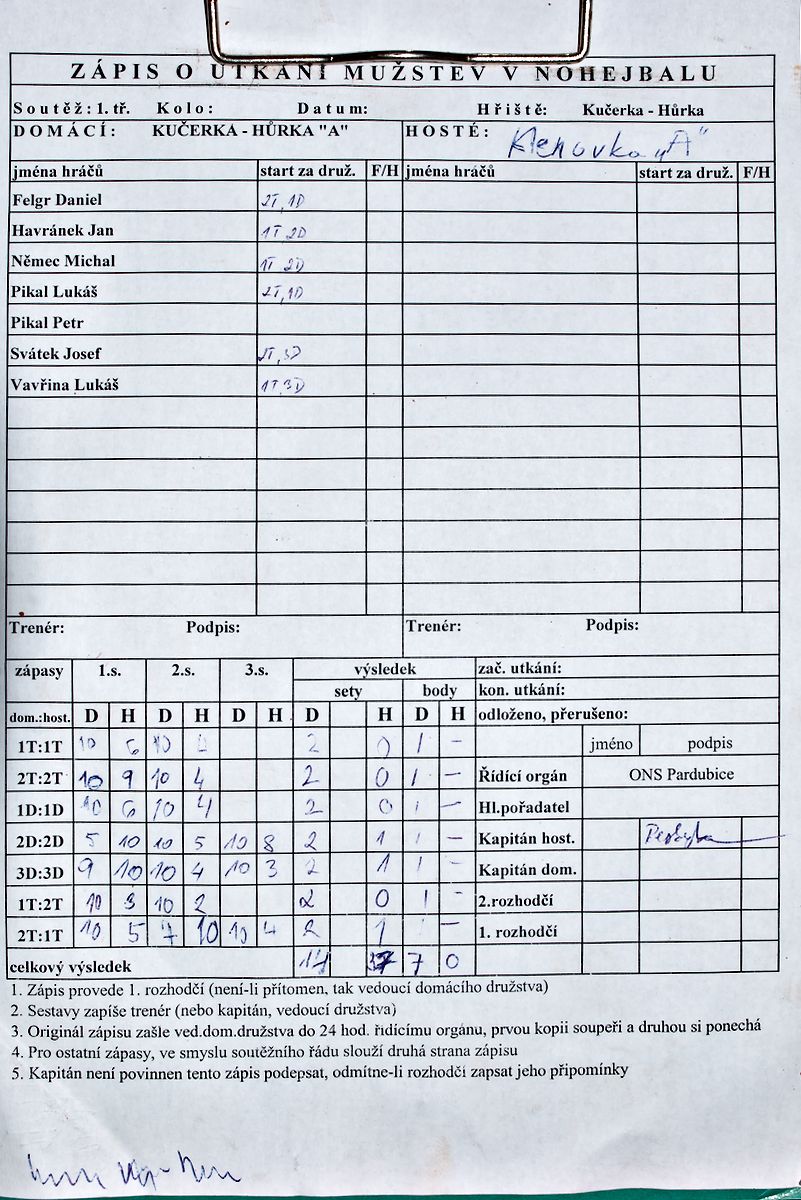 ZÁPIS O UTKÁNÍ MUŽSTEV V NOHEJBALU
Soutěž: 1. tř. Kolo: Datum: Hřiště: Kučerka - Hůrka
DOMÁCÍ: KUČERKA - HŮRKA "A" HOSTÉ: Klenovka "A"
jména hráčů start za druž. F/H jména hráčů start za druž. F/H
Felgr Daniel 2T, 1D
Havránek Jan 1T 2D
Němec Michal 1T 2D
Pikal Lukáš 2T, 1D
Pikal Petr
Svátek Josef 3D
Vavřina Lukáš 1T 3D
Trenér: Podpis: Trenér: Podpis:
zápasy 1.s. 2.s. 3.s. výsledek zač. utkání:
sety body kon. utkání:
dom.:host. D H D H D H D H D H odloženo, přerušeno:
1T:1T 10 6 10 2 0 1 - jméno podpis
2T:2T 10 9 10 4 2 0 1 - Řídící orgán ONS Pardubice
1D:1D 10 6 10 4 2 0 1 - Hl.pořadatel
2D:2D 5 10 10 5 10 8 2 1 1 - Kapitán host.
3D:3D 9 10 10 4 10 3 2 1 1 - Kapitán dom.
1T:2T 10 3 10 2 2 0 1 - 2.rozhodčí
2T:1T 10 5 7 10 10 4 2 1 1 - 1. rozhodčí
celkový výsledek 14 7 0
1. Zápis provede 1. rozhodčí (není-li přítomen, tak vedoucí domácího družstva)
2. Sestavy zapíše trenér (nebo kapitán, vedoucí družstva)
3. Originál zápisu zašle ved.dom.družstva do 24 hod. řidícímu orgánu, prvou kopii soupeři a druhou si ponechá
4. Pro ostatní zápasy, ve smyslu soutěžního řádu slouží druhá strana zápisu
5. Kapitán není povinnen tento zápis podepsat, odmítne-li rozhodčí zapsat jeho připomínky